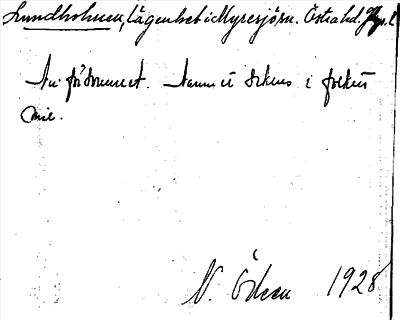 Lundholmen, Lägenhet i Myresjösn. Östra hd. Jkp. l.
Nu försvunnet. Namnet okänt i folket
N. Ödeen 1928